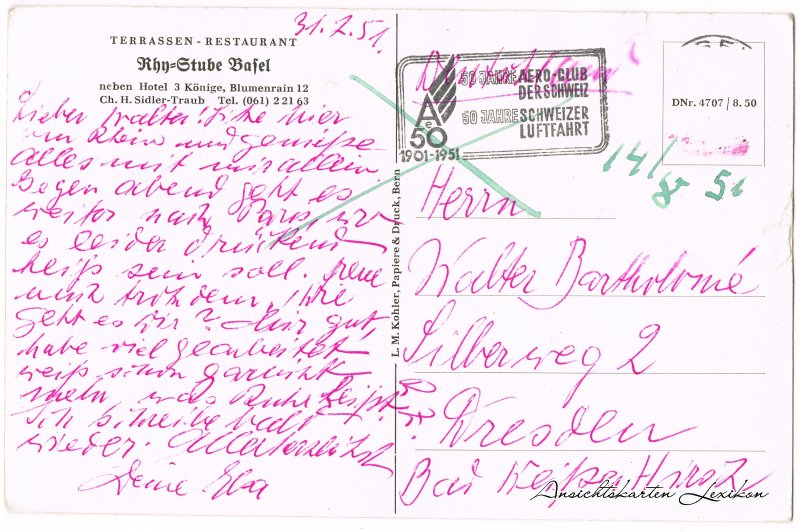 31. 7. 51.
TERRASSEN - RESTAURANT
Rhy=Stube Basel
neben Hotel 3 Könige, Blumenrain 12
Ch. H. Sidler-Traub Tel. (061) 2 21 63
Lieber Walter! Sitze hier
am Rhein und genieße
alles mit mir allein.
Gegen abend geht es
weiter nach Paris, wo
es leider drückend
heiß sein soll. Freue
mich trotzdem. Wie
geht es Dir? Mir gut,
habe viel gearbeitet
weiß schon garnicht
mehr was Ruhe heißt.
Ich schreibe bald
wieder. Allerherzlichst
Deine
L. M. Kohler, Papiere & Druck, Bern
Deutschland
50 JAHRE AERO-CLUB
DER SCHWEIZ
50 JAHRE SCHWEIZER
LUFTFAHRT
AeC
50
1901-1951
DNr. 4707 / 8. 50
14/8 51
Herrn
Walter Bartholomé
Silberweg 2
Dresden
Bad Weißer Hirsch
Ansichtskarten Lexikon